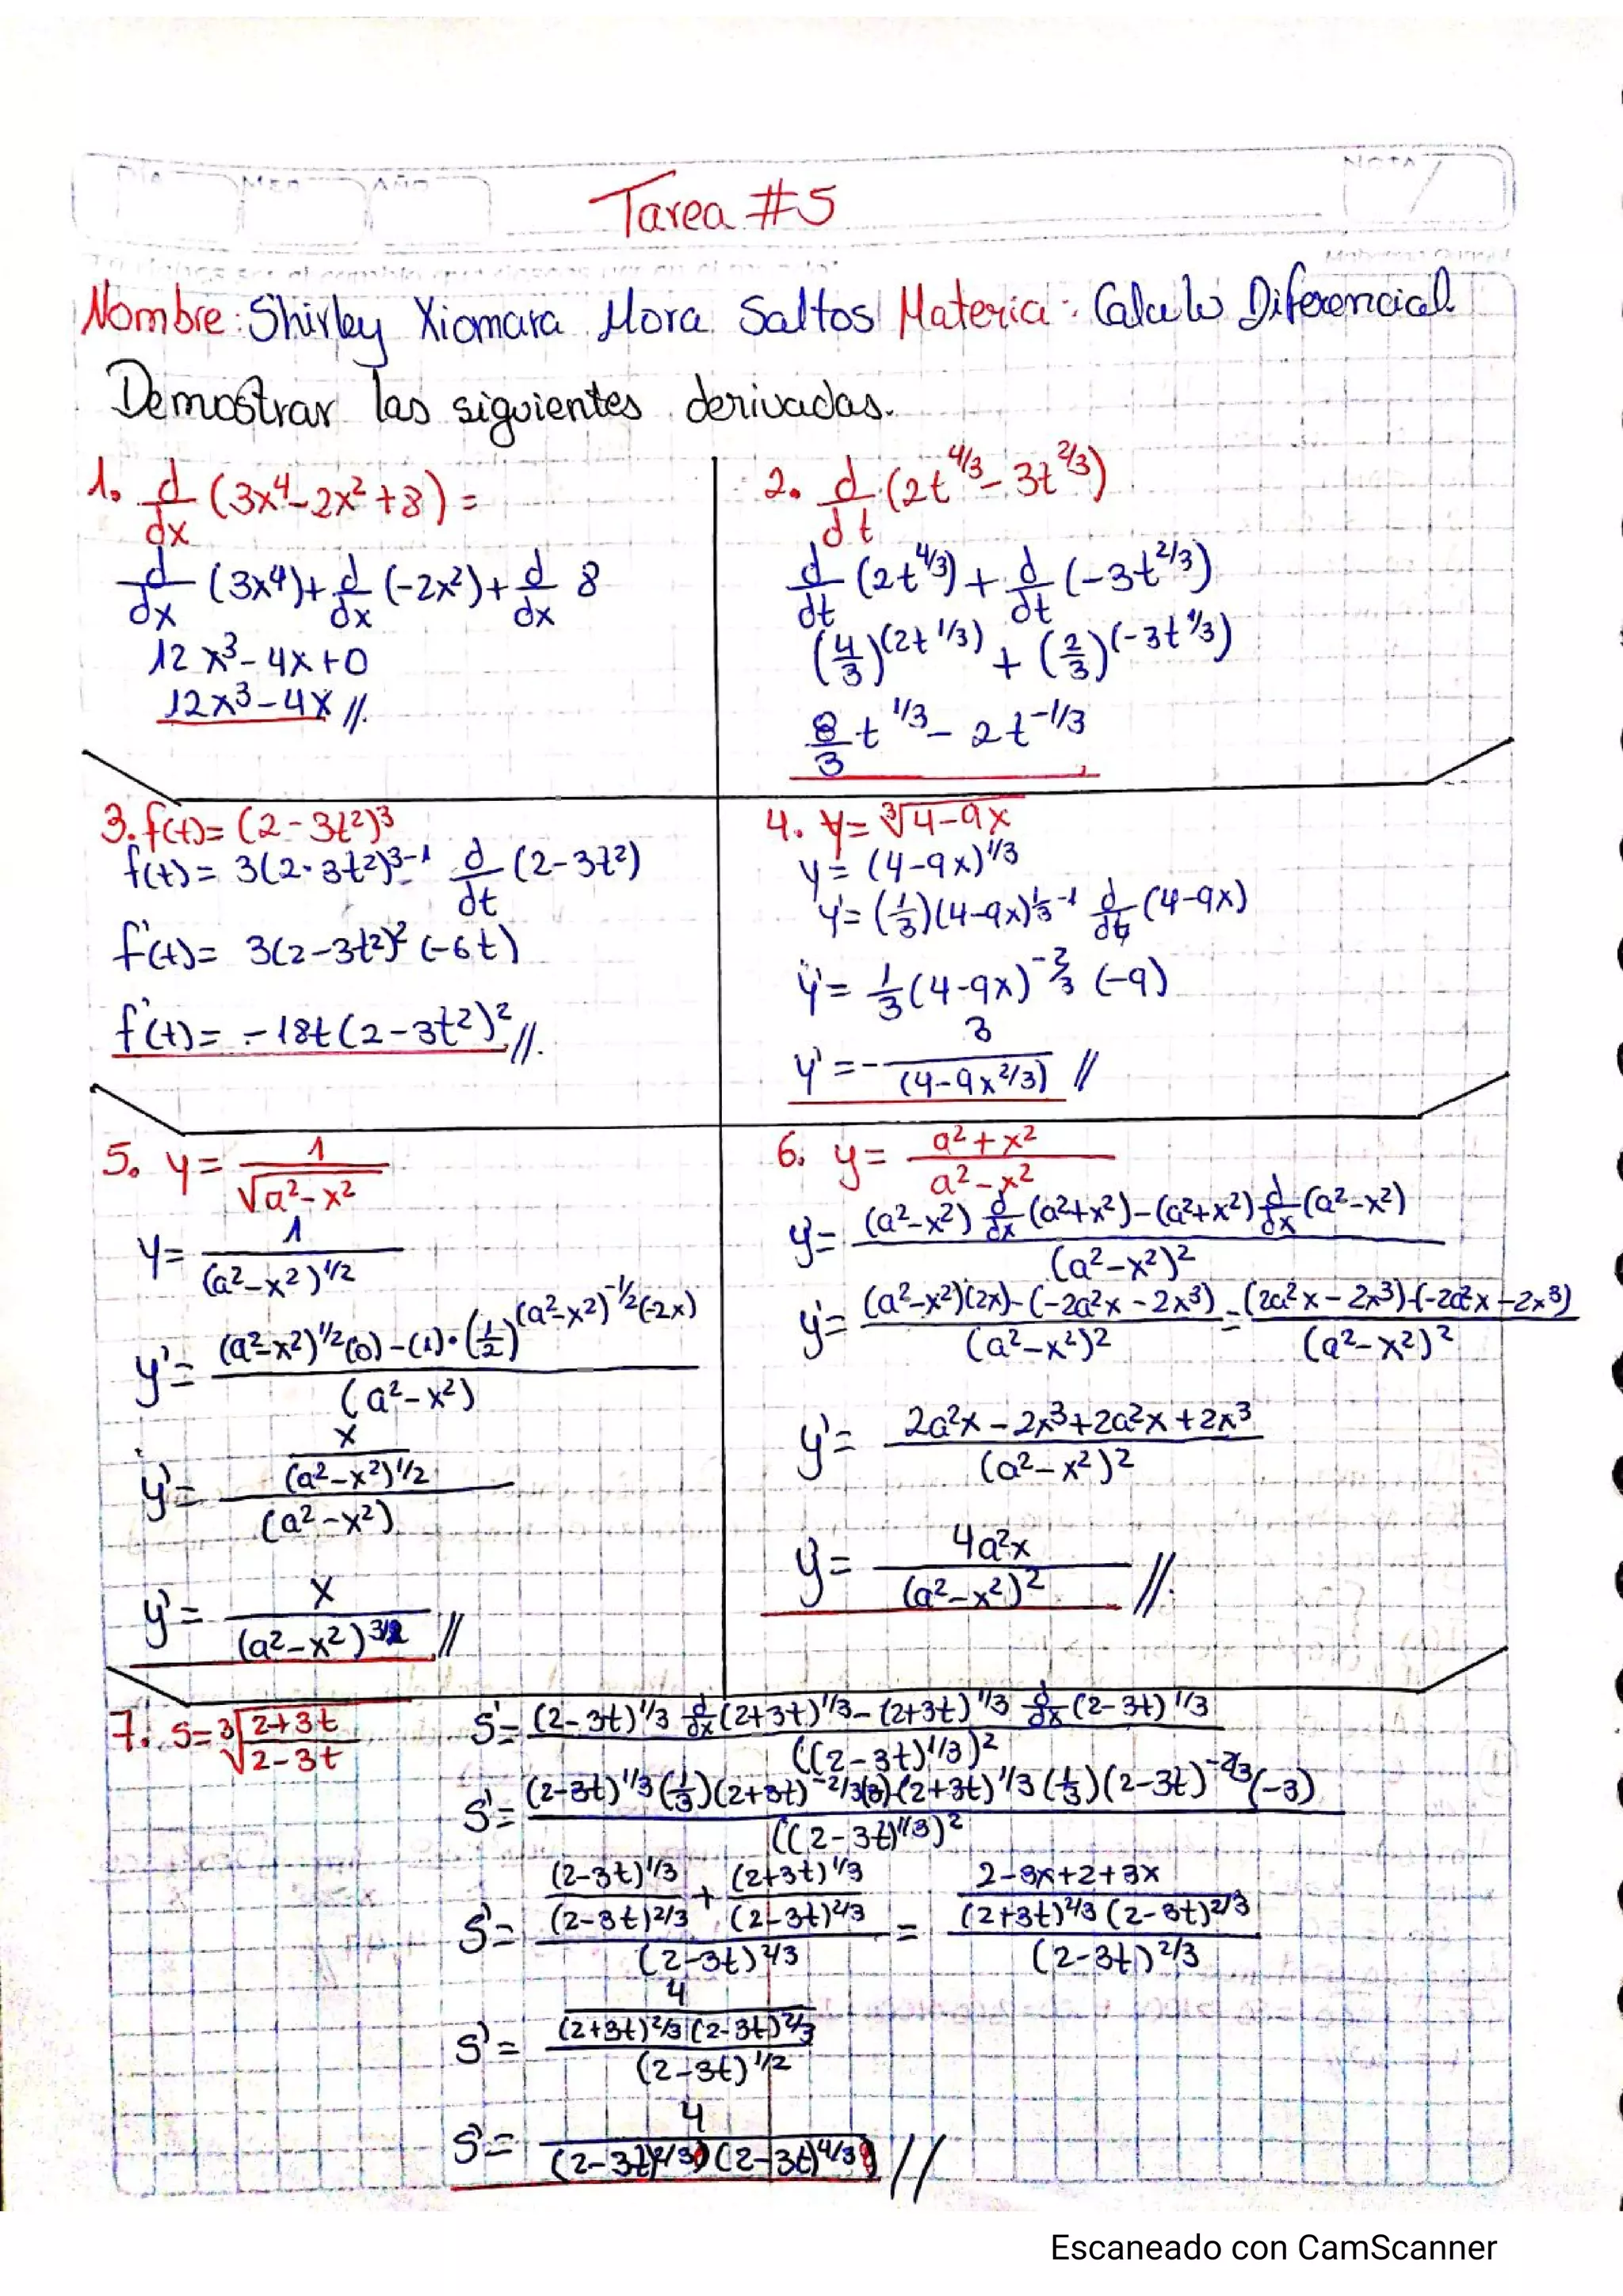 DIA MES AÑO NOTA
Tarea #5
Nombre: Shirley Xiomara Mora Saltos Materia: Calculo Diferencial
Demostrar las siguientes derivadas.
1. d/dx (3x⁴-2x²+8) =
d/dx (3x⁴)+ d/dx (-2x²)+ d/dx 8
12x³-4x+0
12x³-4x //.
2. d/dt (2t^4/3 - 3t^2/3)
d/dt (2t^4/3) + d/dt (-3t^2/3)
(4/3)(2t^1/3) + (2/3)(-3t^1/3)
8/3 t^1/3 - 2t^-1/3
3. f(t)= (2-3t²)³
f(t)= 3(2-3t²)^3-1 d/dt (2-3t²)
f'(t)= 3(2-3t²)² (-6t)
f'(t)= -18t(2-3t²)² //.
4. y= ∛4-9x
y= (4-9x)^1/3
y'= (1/3)(4-9x)^1/3-1 d/dt (4-9x)
y'= 1/3 (4-9x)^-2/3 (-9)
y'= - 3/(4-9x^2/3) //
5. y= 1/√a²-x²
y= 1/(a²-x²)^1/2
y'= (a²-x²)^1/2(0)-(1)·(1/2)(a²-x²)^-1/2(-2x)/(a²-x²)
y'= x/(a²-x²)^1/2 /(a²-x²)
y'= x/(a²-x²)^3/2 //
6. y= a²+x²/a²-x²
y'= (a²-x²) d/dx (a²+x²)-(a²+x²) d/dx (a²-x²)/(a²-x²)²
y'= (a²-x²)(2x)-(-2a²x-2x³)/(a²-x²)² = (2a²x-2x³)-(-2a²x-2x³)/(a²-x²)²
y'= 2a²x-2x³+2a²x+2x³/(a²-x²)²
y'= 4a²x/(a²-x²)² //.
7. s= ∛2+3t/2-3t
s'= (2-3t)^1/3 d/dx (2+3t)^1/3-(2+3t)^1/3 d/dx (2-3t)^1/3/((2-3t)^1/3)²
s'= (2-3t)^1/3(1/3)(2+3t)^-2/3(3)-(2+3t)^1/3(1/3)(2-3t)^-2/3(-3)/((2-3t)^1/3)²
s'= (2-3t)^1/3/(2-3t)^2/3 + (2+3t)^1/3/(2-3t)^2/3 /(2-3t)^2/3 = 2-3x+2+3x/(2+3t)^2/3(2-3t)^2/3 /(2-3t)^2/3
s'= 4/(2+3t)^2/3(2-3t)^2/3 /(2-3t)^1/2
s'= 4/(2-3t)^2/3)(2-3t)^4/3) //
Escaneado con CamScanner